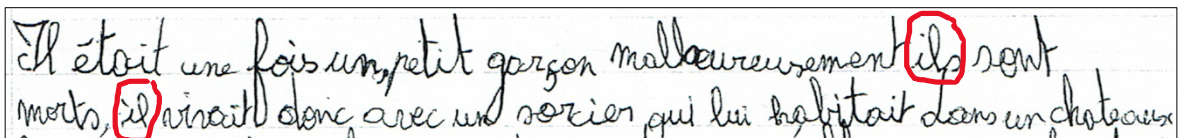 Il était une fois un, petit garçon malheureusement ils sont
morts, il vivait donc avec un sorcier qui lui habitait dans un chateaux